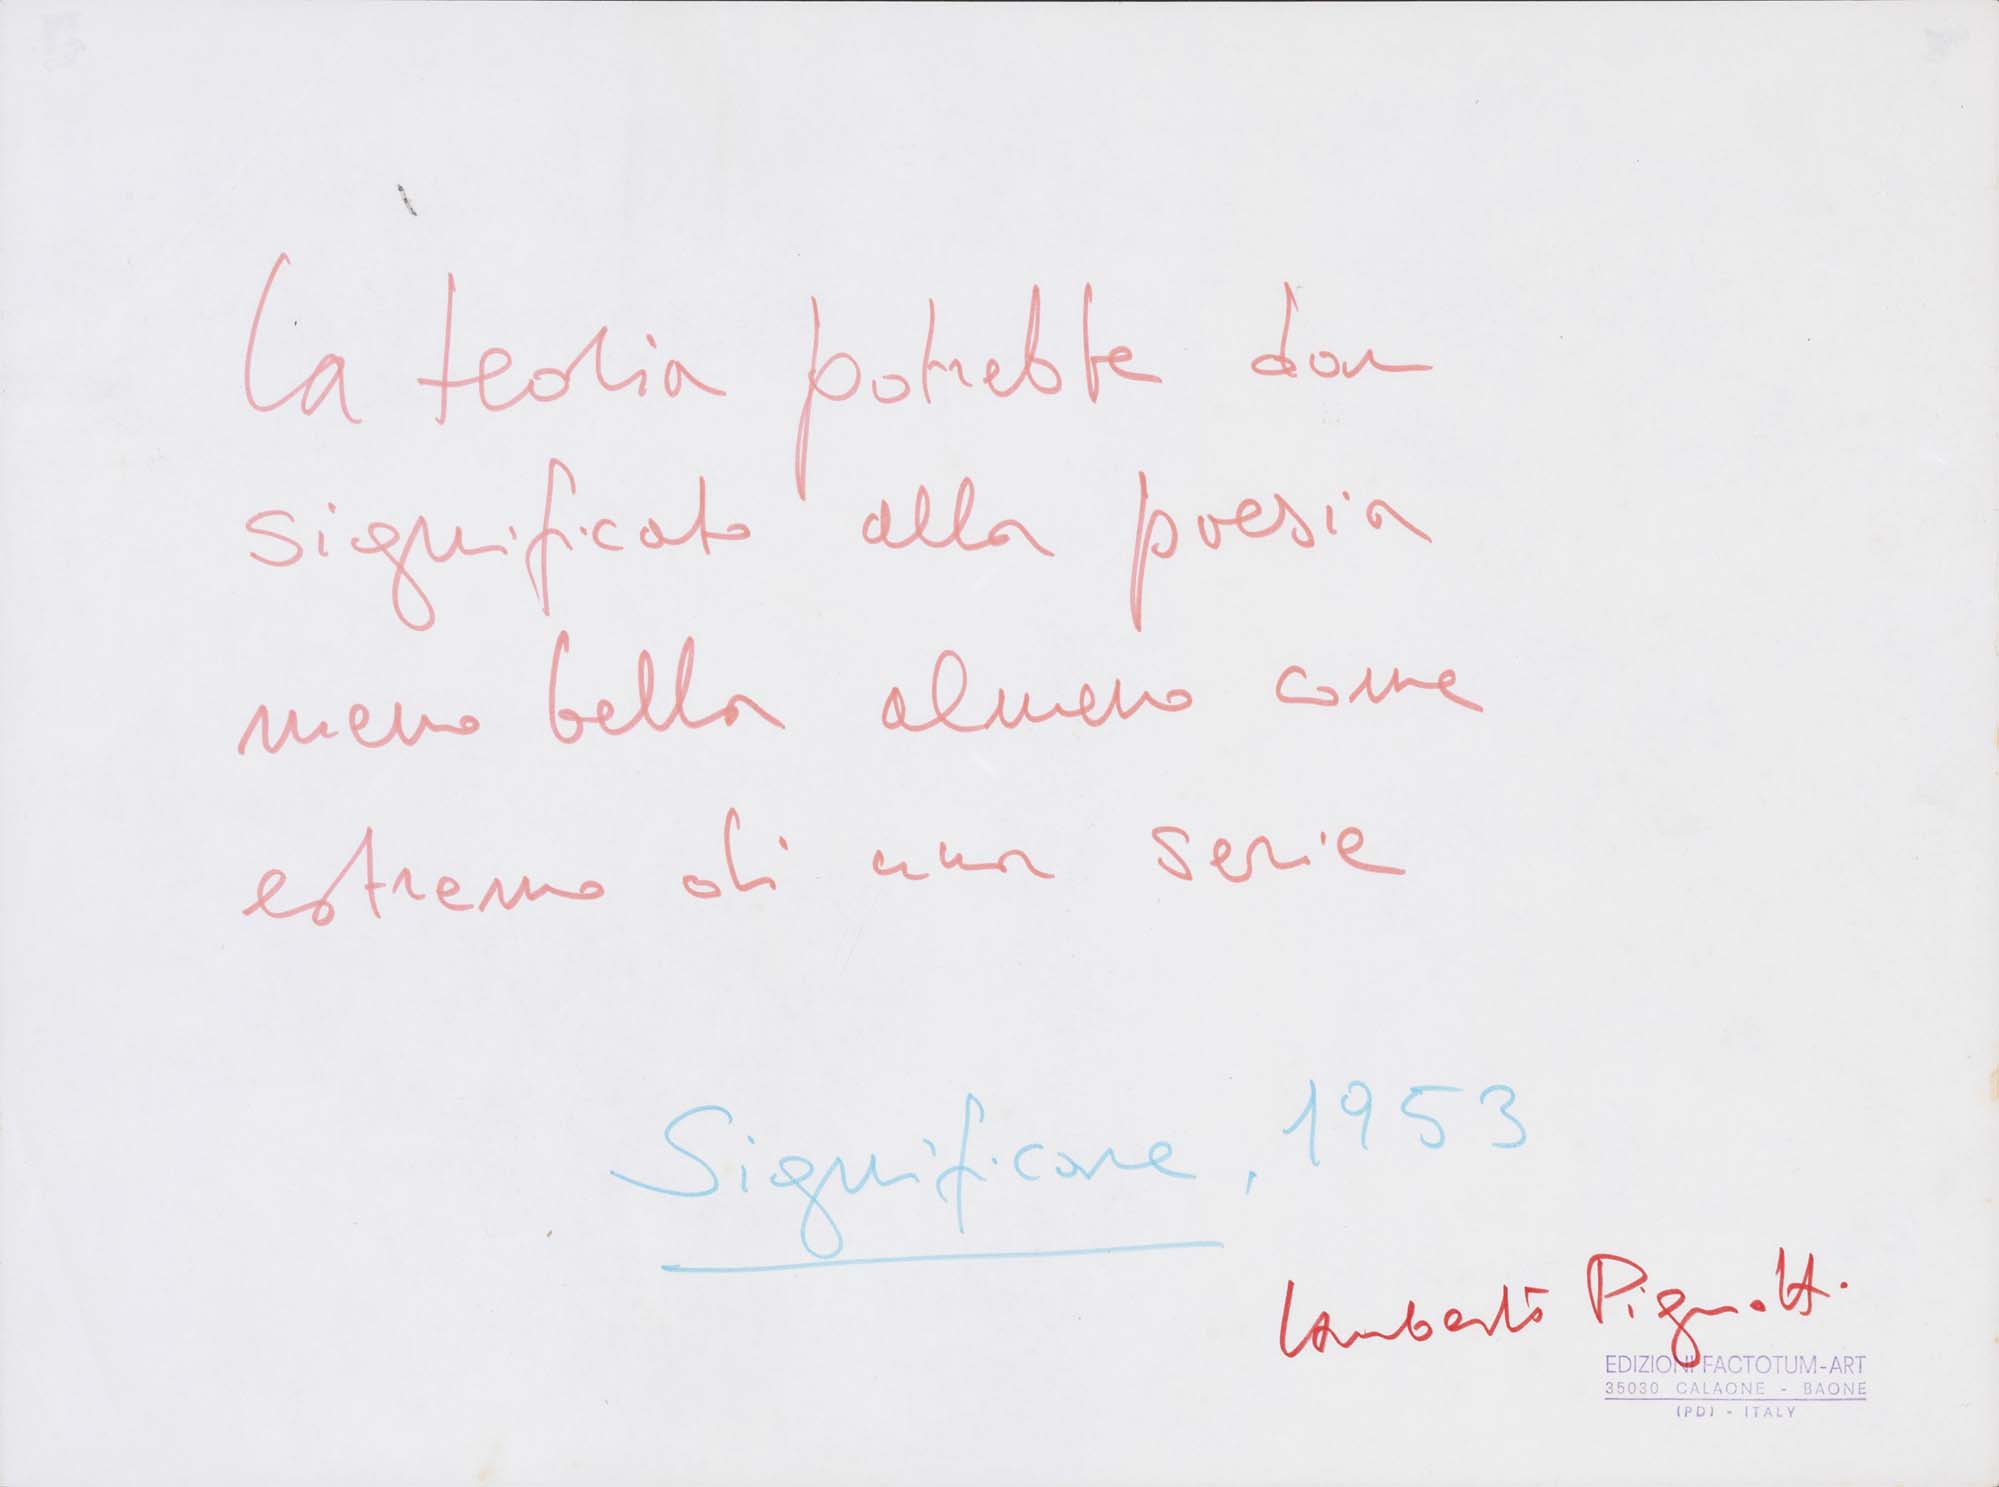 La teoria potrebbe dar
significato alla poesia
meno bella almeno come
estremo di una serie
Significare, 1953
Lamberto Pignotti
EDIZIONI FACTOTUM-ART
35030 CALAONE - BAONE
(PD) - ITALY